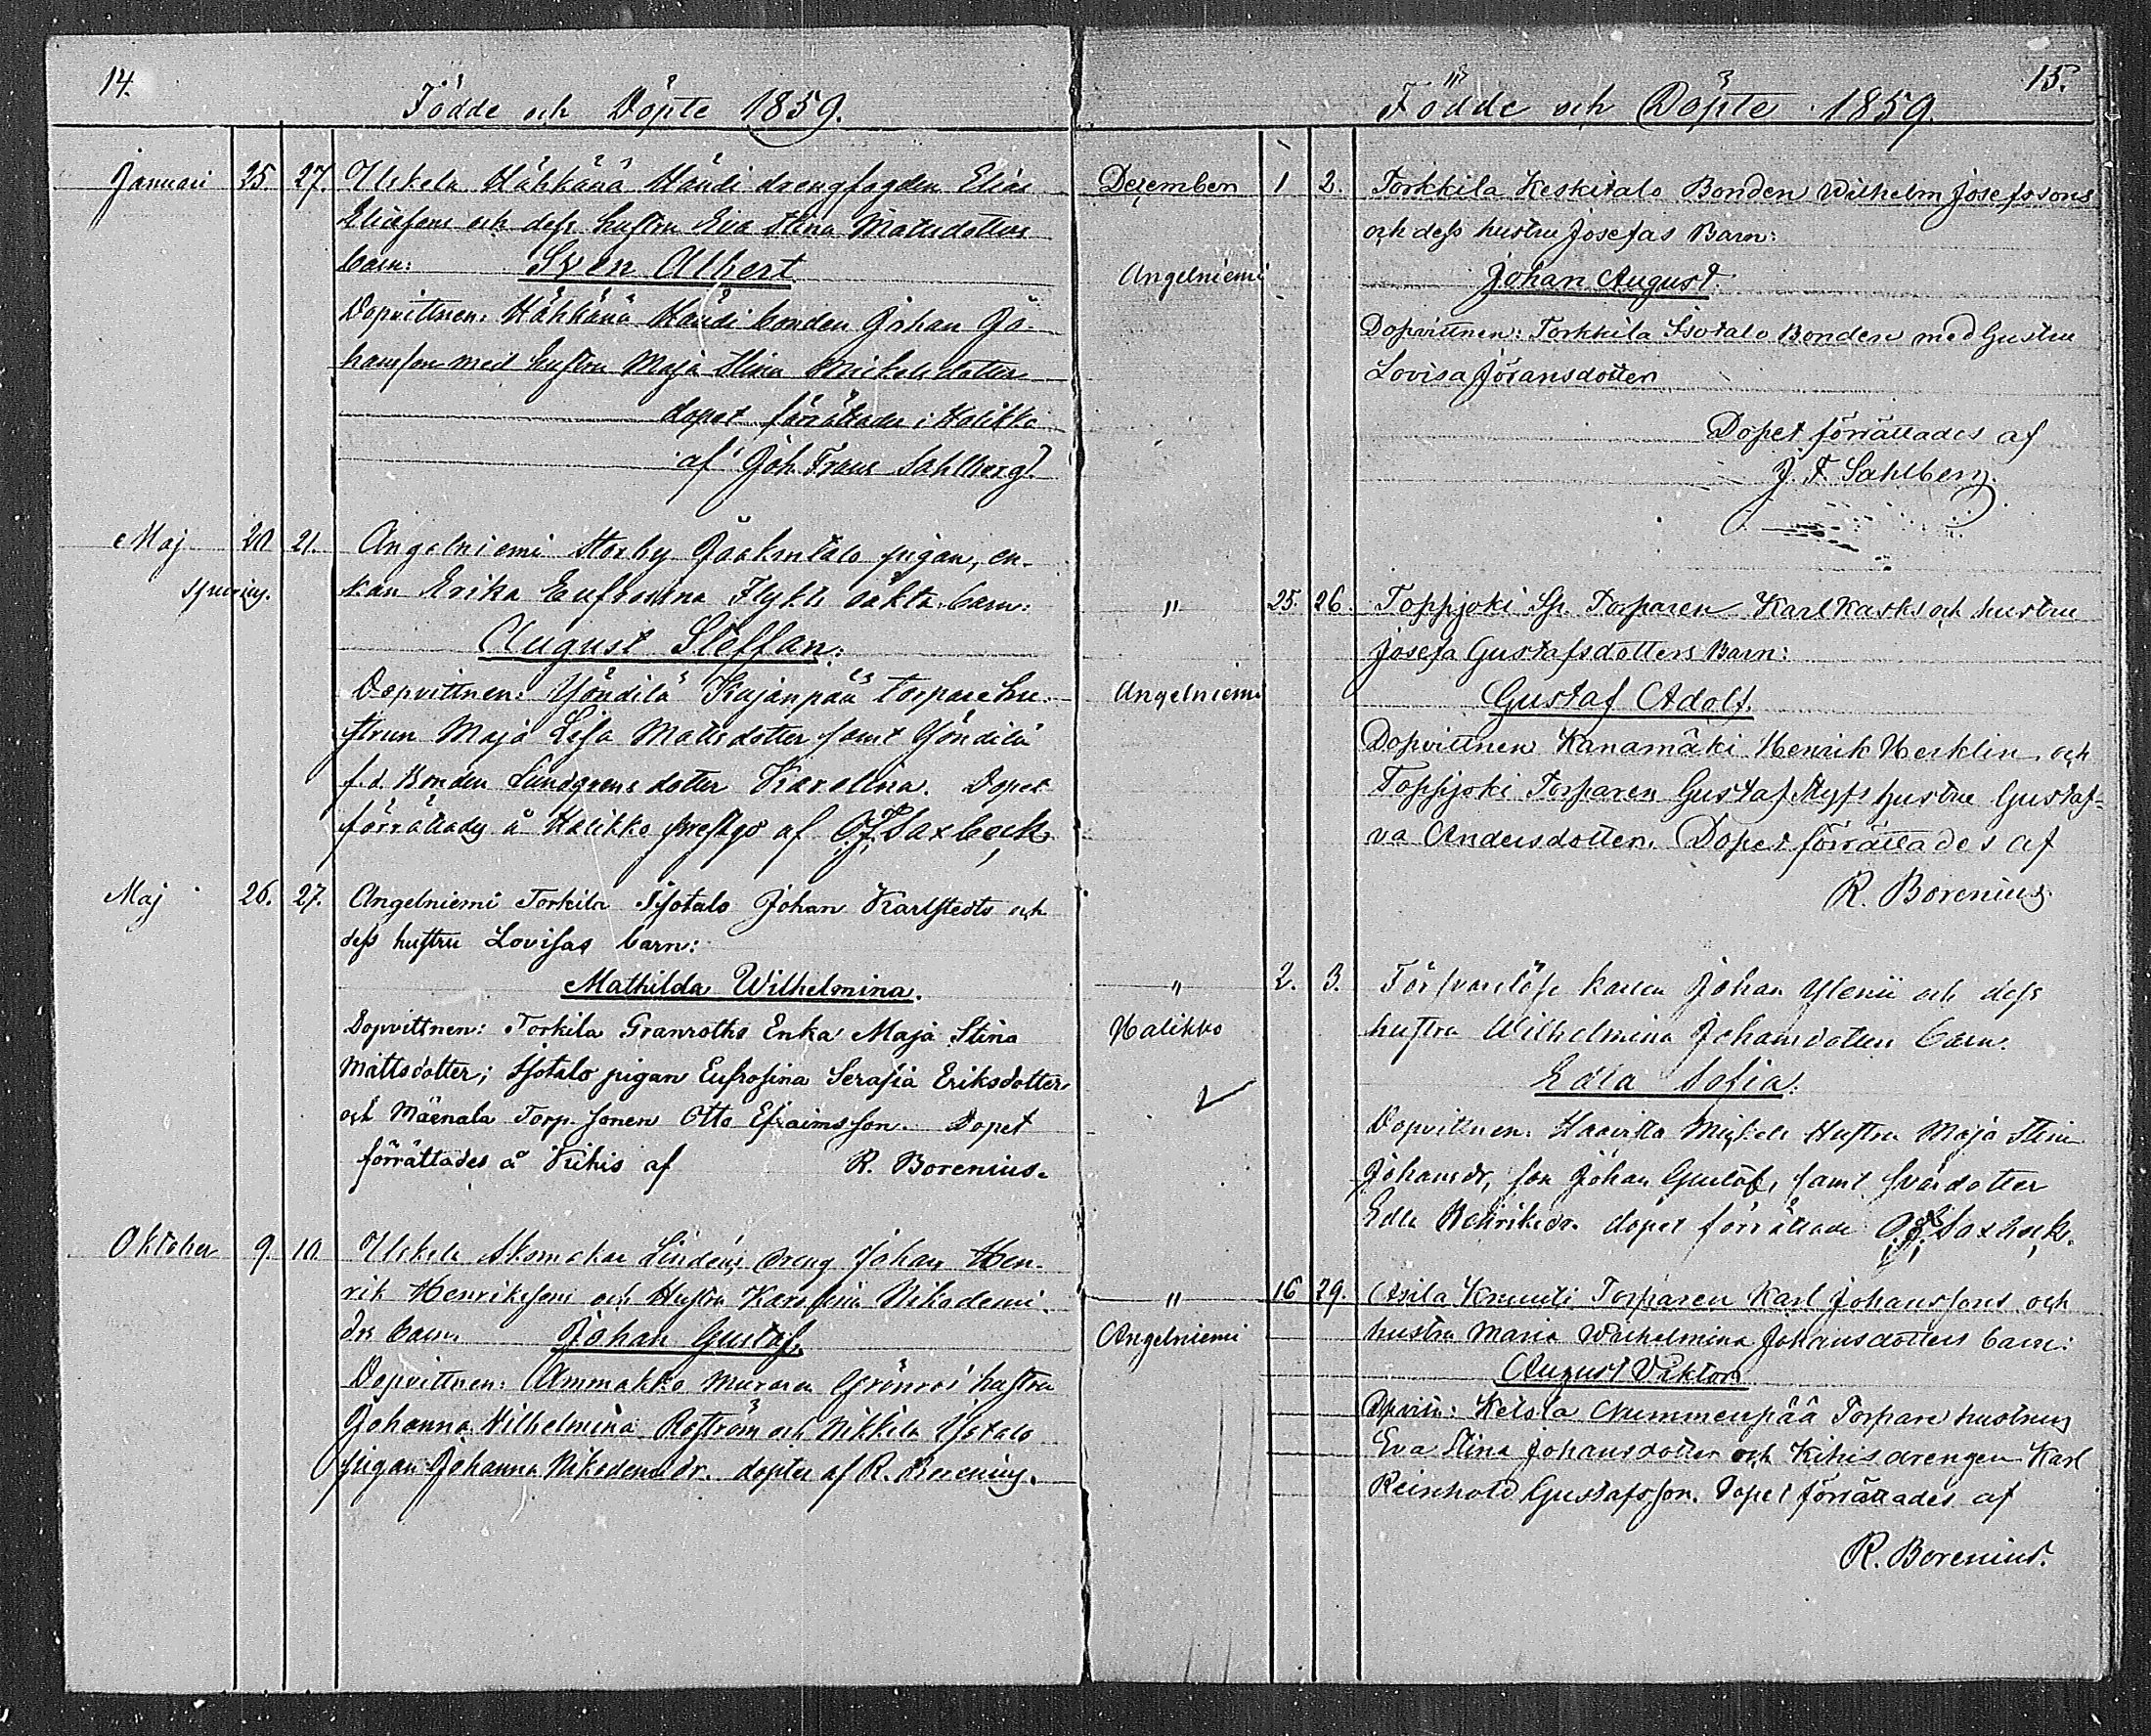 14.
Födde och Döpte 1859.
Januari 25. 27. Uskela Hähkänä Händi drengfogden Elias
Eliassons och dess hustru Eva Stina Matsdotters
barn: Sven Albert
Dopvittnen: Hähkänä Händi bonden Johan Jo-
hansson med hustru Maja Stina Mickelsdotter
dopet förrättades i Halikko
af Joh. Frans Sahlberg.
Maj 20 21. Angelniemi Storby Jaakontalo pigan, en-
kan Erika Eufrosina Flykts oäkta barn:
spurius.
August Steffan:
Dopvittnen: Yöndilä Kajanpää torpare hu-
strun Maja Lisa Matsdotter samt Yöndilä
f.d. Bonden Lundgrens dotter Karolina. Dopet
förrättades å Halikko prestgd af O.J. Saxbeck
Maj 26. 27. Angelniemi Torkila Isotalo Johan Karlstedts och
dess hustru Lovisas barn:
Mathilda Wilhelmina.
Dopvittnen: Torkila Granroths Enka Maja Stina
Mattsdotter; Isotalo pigan Eufrosina Serafia Eriksdotter
och Mäenala Torp. sonen Otto Efraimsson. Dopet
förrättades å Kihis af R. Borenius.
Oktober 9. 10. Uskela Skomakar Lindens dreng Johan Hen-
rik Henrikssons och Hustru Karolina Nikodemi-
drs barn Johan Gustaf.
Dopvittnen: Ammakko muraren Grönroos hustru
Johanna Wilhelmina Roström och Nikkilä Isotalo
pigan Johanna Nikodemidr. döptes af R. Borenius.
15.
Födde och Döpte 1859.
Dezember 1 2. Torkkila Keskitalo Bonden Wilhelm Josefssons
och dess hustru Josefas Barn:
Angelniemi
Johan August.
Dopvittnen: Torkkila Isotalo Bonden med hustru
Lovisa Jöransdotter
Dopet förrättades af
J. F. Sahlberg.
" 25. 26. Toppjoki Sp. Torparen Karl Kasks och hustru
Josefa Gustafsdotters Barn:
Angelniemi
Gustaf Adolf.
Dopvittnen Kanamäki Henrik Herklin och
Toppjoki Torparen Gustaf Styfs hustru Gustaf-
va Andersdotter. Dopet förrättades af
R. Borenius
" 2. 3. Försvarslöse karlen Johan Ylenii och dess
Halikko
hustru Wilhelmina Johansdotters barn.
Edla Sofia.
Dopvittnen. Haavisto Mickels Hustru Maja Stina
Johansdr, son Johan Gustaf, samt svärdotter
Edla Henriksdr. dopet förrättade O.J. Saxbeck.
" 16 29. Asila Knuuti Torparen Karl Johanssons och
Angelniemi
hustru Maria Wilhelmina Johansdotters barn:
August Viktor
Dpvitn: Ketola Nummenpää Torpare hustrun
Eva Stina Johansdotter och Kihis drengen Karl
Reinhold Gustafsson. Dopet förrättades af
R. Borenius.